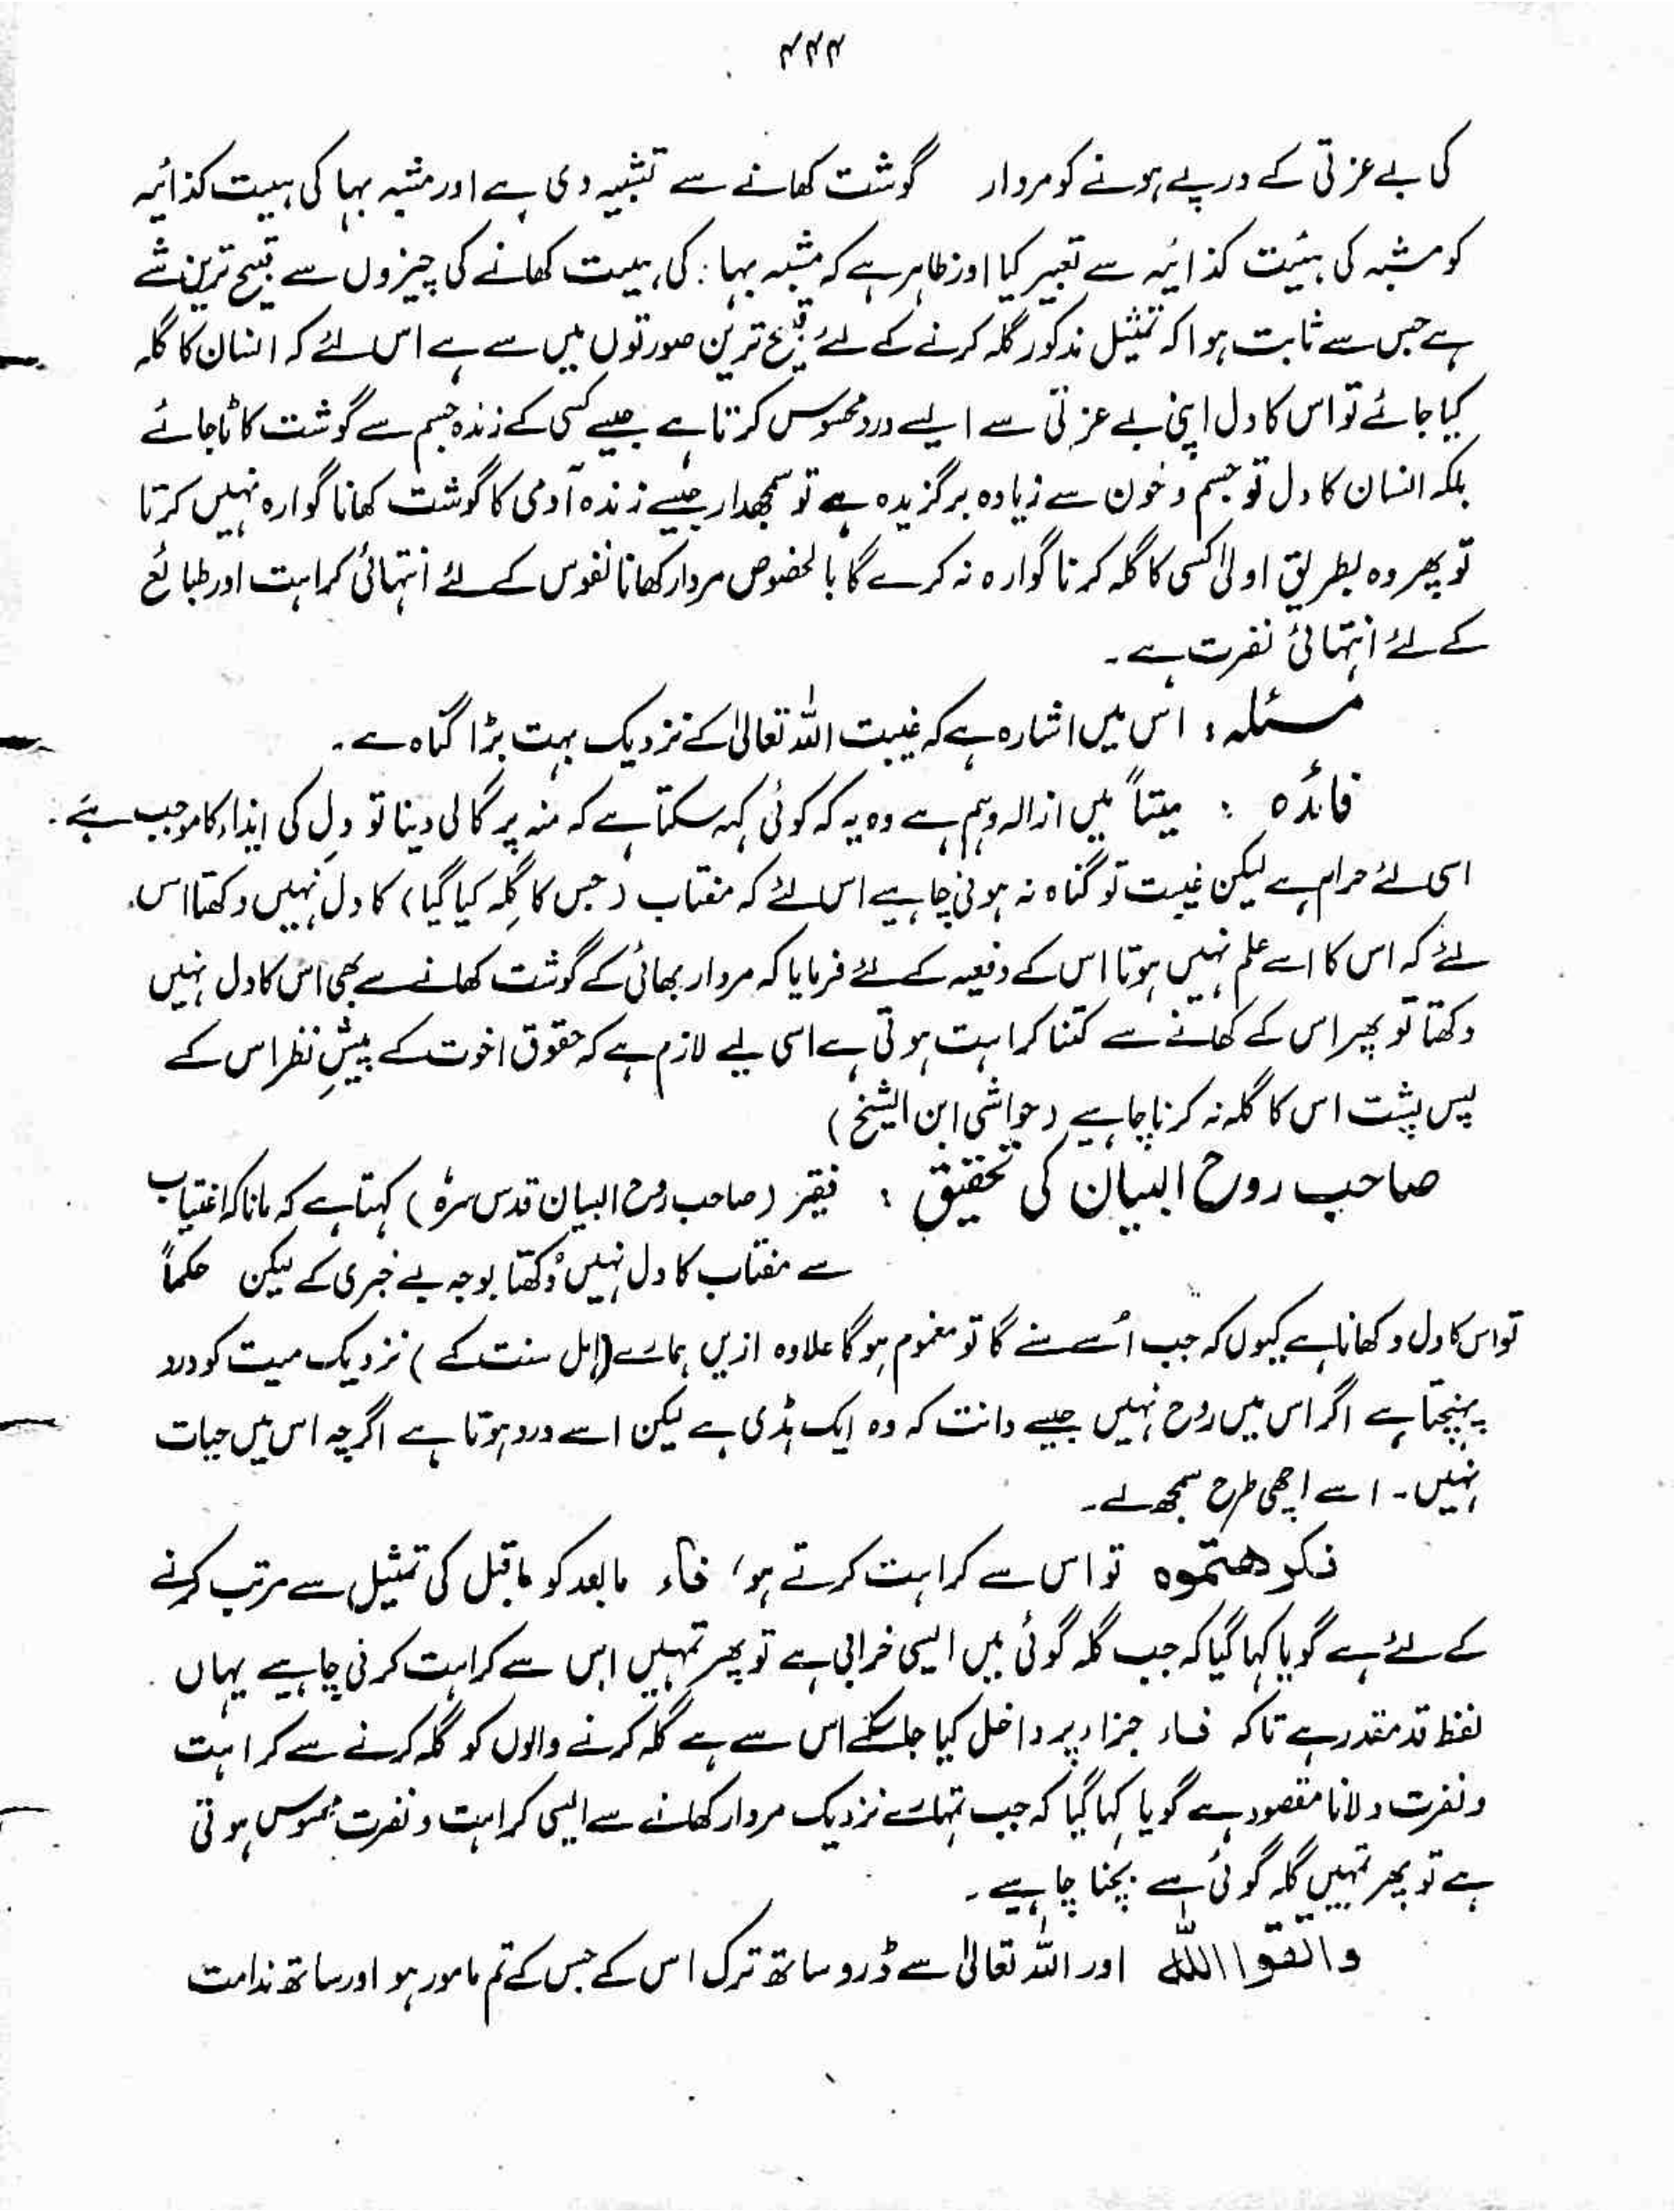 ۴۴۴
کی بے عزتی کے درپے ہونے کو مردار گوشت کھانے سے تشبیہ دی ہے اور مشبہ بہا کی ہیئت کذائیہ
کو مشبہ کی ہیئت کذائیہ سے تعبیر کیا اور ظاہر ہے کہ مشبہ بہا : کی ہیئت کھانے کی چیزوں سے قبیح ترین شے
ہے جس سے ثابت ہوا کہ تمثیل مذکور گلہ کرنے کے لئے قبیح ترین صورتوں میں سے ہے اس لئے کہ انسان کا گلہ
کیا جائے تو اس کا دل اپنی بے عزتی سے ایسے درد محسوس کرتا ہے جیسے کسی کے زندہ جسم سے گوشت کاٹا جائے
بلکہ انسان کا دل تو جسم و خون سے زیادہ برگزیدہ ہے تو سمجھدار جیسے زندہ آدمی کا گوشت کھانا گوارہ نہیں کرتا
تو پھر وہ بطریق اولیٰ کسی کا گلہ کرنا گوارہ نہ کرے گا بالخصوص مردار کھانا نفوس کے لئے انتہائی کراہت اور طبائع
کے لئے انتہائی نفرت ہے ۔
مسئلہ : اس میں اشارہ ہے کہ غیبت اللہ تعالیٰ کے نزدیک بہت بڑا گناہ ہے ۔
فائدہ : میتاً میں ازالہ وہم ہے وہ یہ کہ کوئی کہہ سکتا ہے کہ منہ پر گالی دینا تو دل کی ایذاء کا موجب ہے :
اسی لئے حرام ہے لیکن غیبت تو گناہ نہ ہونی چاہیے اس لئے کہ مغتاب (جس کا گِلہ کیا گیا) کا دل نہیں دکھتا اس
لئے کہ اس کا اسے علم نہیں ہوتا اس کے دفعیہ کے لئے فرمایا کہ مردار بھائی کے گوشت کھانے سے بھی اس کا دل نہیں
دکھتا تو پھر اس کے کھانے سے کتنا کراہت ہوتی ہے اسی لیے لازم ہے کہ حقوق اخوت کے پیشِ نظر اس کے
پس پشت اس کا گلہ نہ کرنا چاہیے (حواشی ابن الشیخ)
صاحب روح البیان کی تحقیق : فقیر (صاحب روح البیان قدس سرہٗ) کہتا ہے کہ مانا کہ اغتیاب
سے مغتاب کا دل نہیں دُکھتا بوجہ بے خبری کے لیکن حکماً
تو اس کا دل دکھانا ہے کیوں کہ جب اُسے سنے گا تو مغموم ہو گا علاوہ ازیں ہمارے (اہل سنت کے) نزدیک میت کو درد
پہنچتا ہے اگر اس میں روح نہیں جیسے دانت کہ وہ ایک ہڈی ہے لیکن اسے درد ہوتا ہے اگرچہ اس میں حیات
نہیں ۔ اسے اچھی طرح سمجھ لے ۔
فکرھتموہ تو اس سے کراہت کرتے ہو ، فاء مابعد کو ماقبل کی تمثیل سے مرتب کرنے
کے لئے ہے گویا کہا گیا کہ جب گلہ گوئی میں ایسی خرابی ہے تو پھر تمہیں اس سے کراہت کرنی چاہیے یہاں
لفظ قد مقدر ہے تاکہ فاء جزاء پر داخل کیا جا سکے اس سے ہے گلہ کرنے والوں کو گلہ کرنے سے کراہت
و نفرت دلانا مقصود ہے گویا کہا گیا کہ جب تمہارے نزدیک مردار کھانے سے ایسی کراہت و نفرت محسوس ہوتی
ہے تو پھر تمہیں گلہ گوئی سے بچنا چاہیے ۔
واتقوا اللّٰہ اور اللہ تعالیٰ سے ڈرو ساتھ ترک اس کے جس کے تم مامور ہو اور ساتھ ندامت